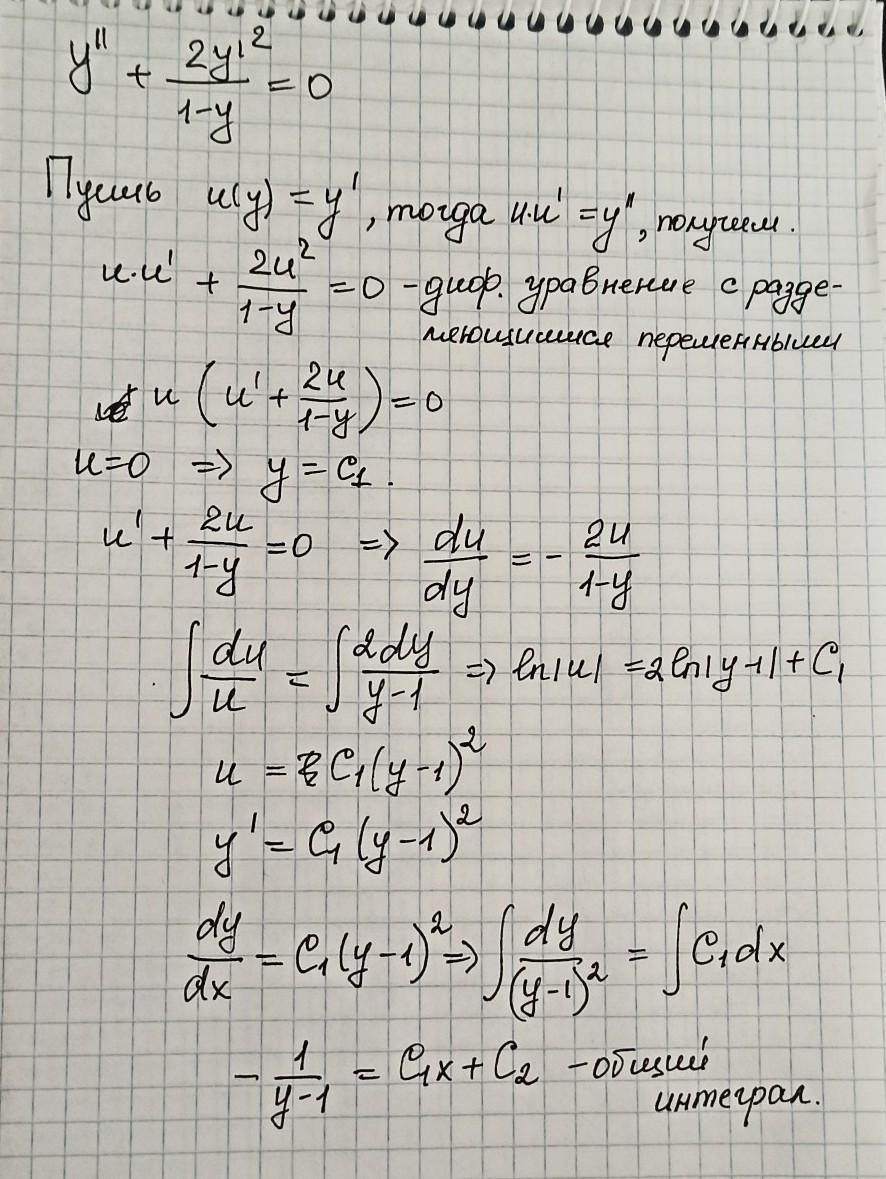 y'' + 2y'²/(1-y) = 0
Пусть u(y) = y', тогда u·u' = y'', получим.
u·u' + 2u²/(1-y) = 0 - диф. уравнение с разде-
ляющимися переменными
u (u' + 2u/(1-y)) = 0
u=0 => y = C₁.
u' + 2u/(1-y) = 0 => du/dy = - 2u/(1-y)
∫ du/u = ∫ 2dy/(y-1) => ln|u| = 2ln|y-1| + C₁
u = C₁(y-1)²
y' = C₁(y-1)²
dy/dx = C₁(y-1)² => ∫ dy/(y-1)² = ∫ C₁dx
- 1/(y-1) = C₁x + C₂ - общий
интеграл.